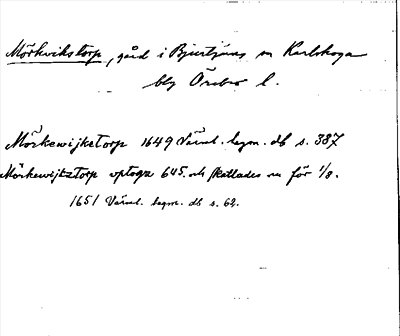 Mörkvikstorp, gård i Bjurtjärns sn Karlskoga
blg Örebro l.
Mörkewijkstorp 1649 Värml. lagm. db s. 387
Mörkewijkstorp vptoga 645. och skattlades nu för 1/8.
1651 Värml. lagm. db s. 62.